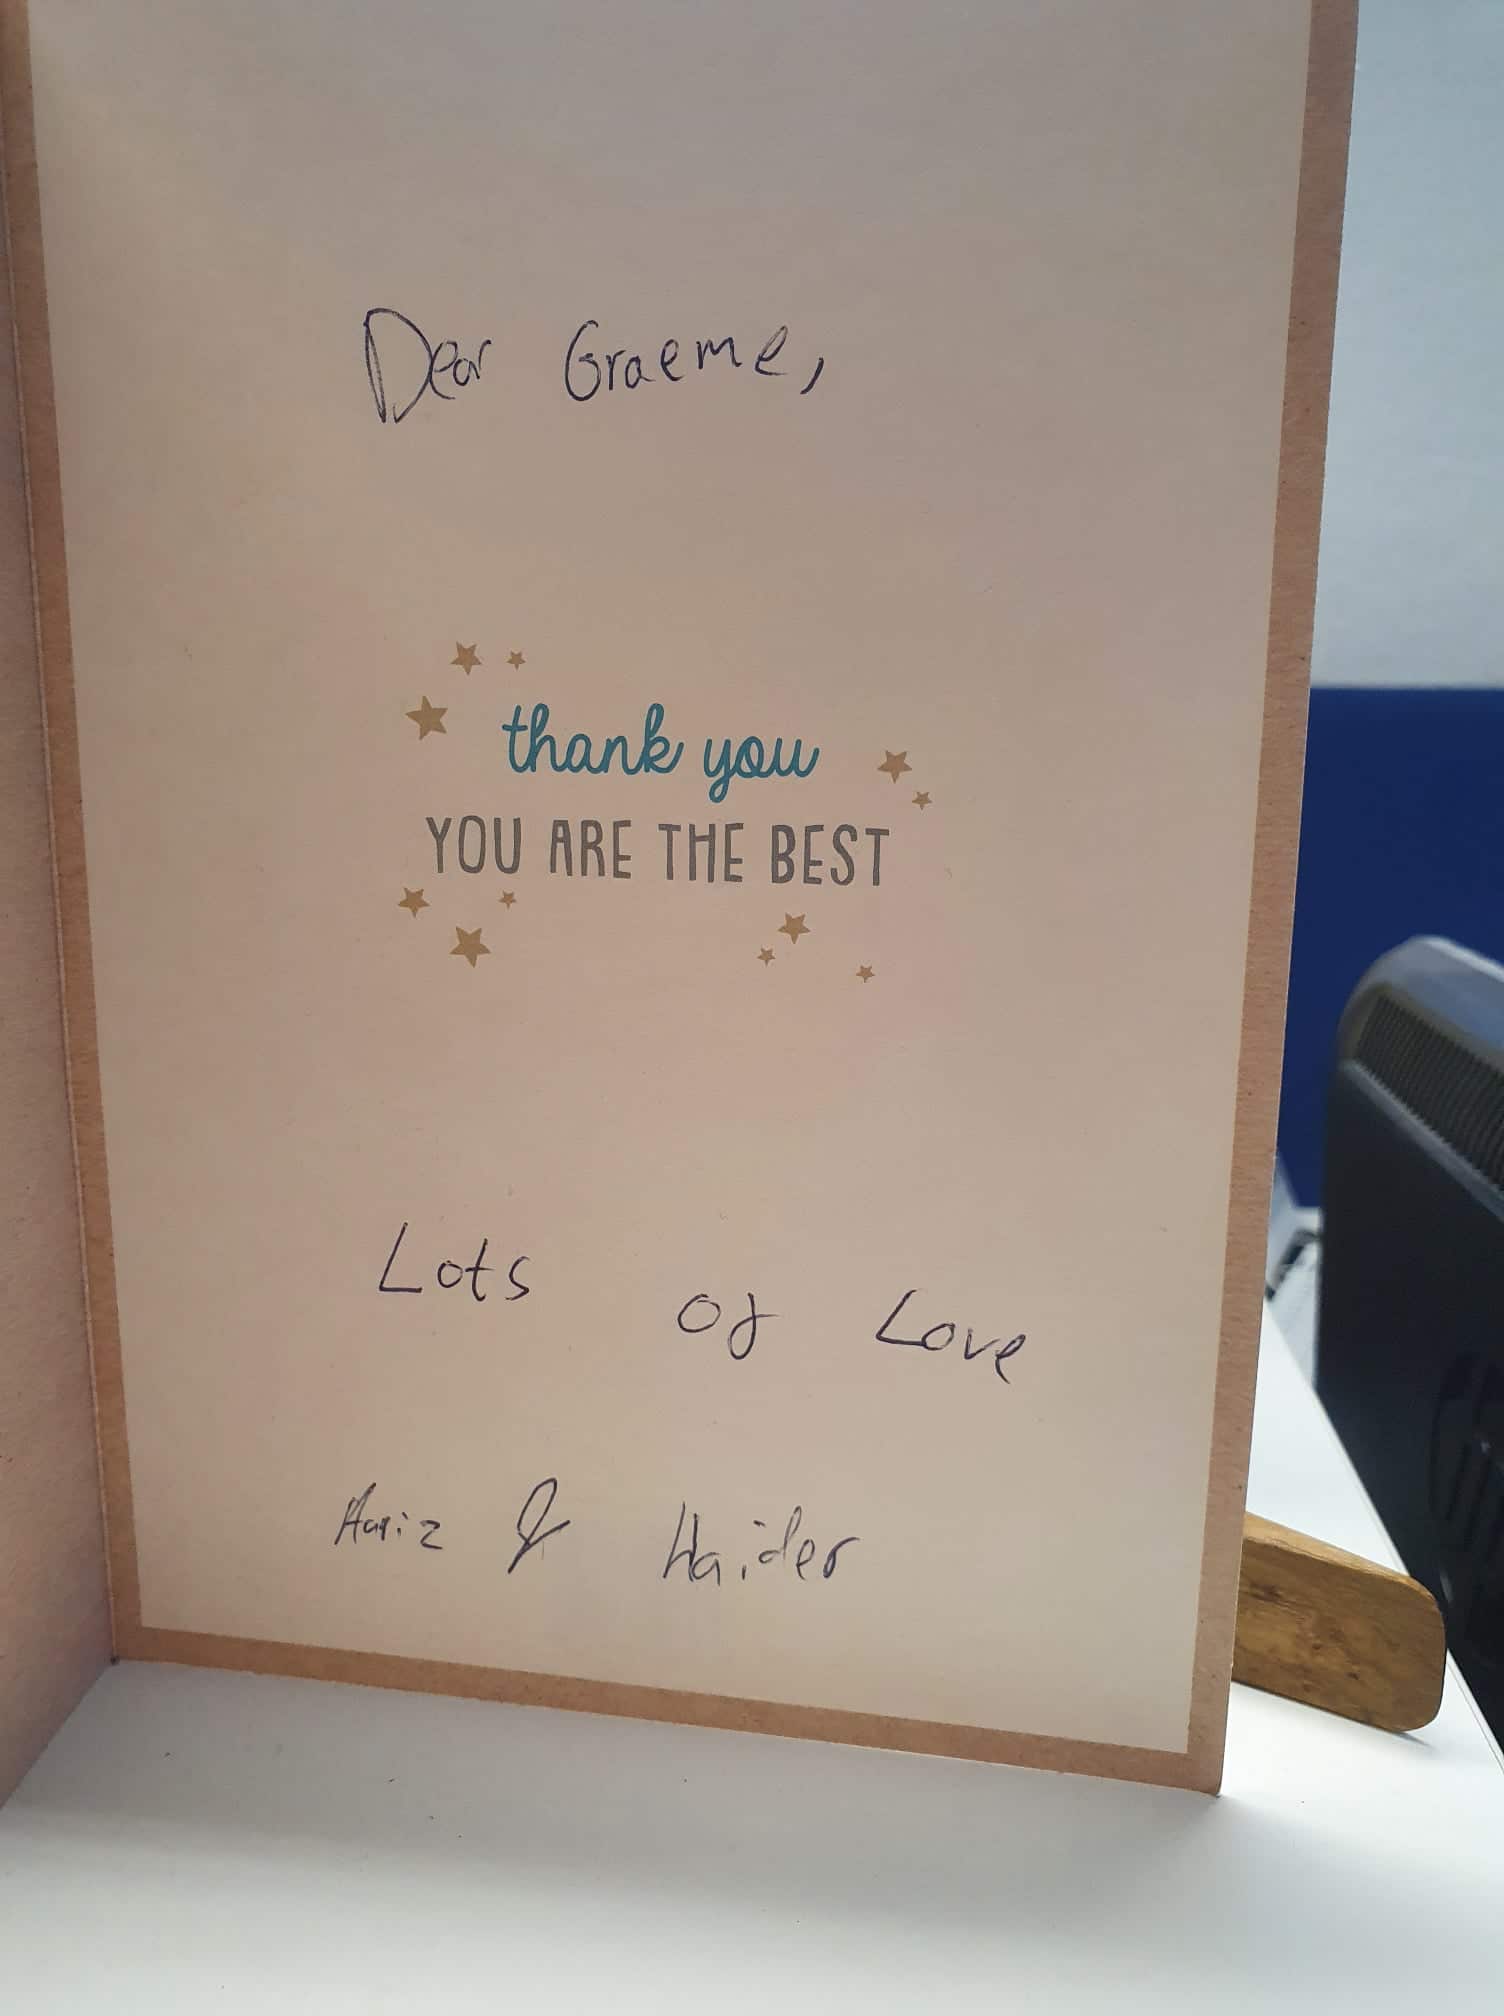 Dear Graeme,
thank you
YOU ARE THE BEST
Lots of Love
Aariz & Haider